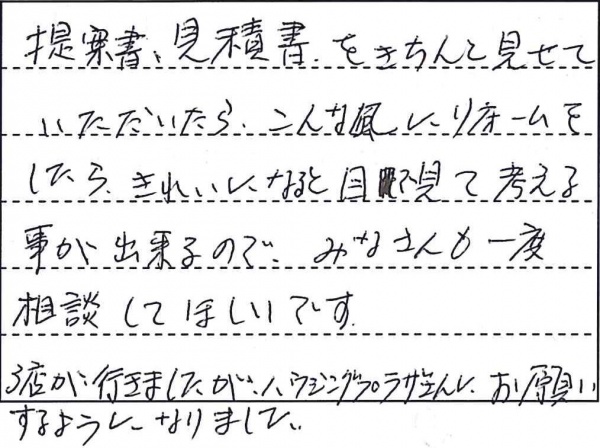 提案書、見積書、をきちんと見せて
いただいたら、こんな風にリホームを
したら、きれいになると目で見て考える
事が出来るので、みなさんも一度
相談してほしいです。
3店が、行きましたが、ハウジングプラザさんに、お願い
するようになりました。